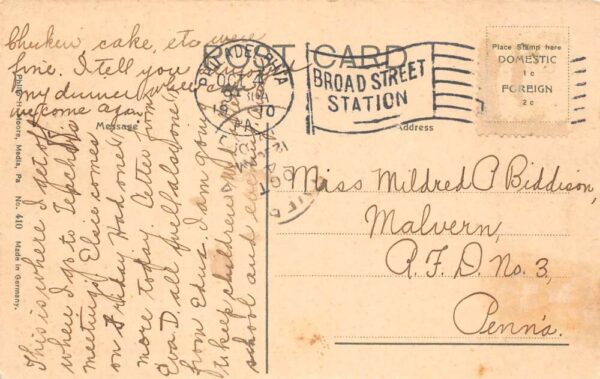 Chicken, cake, etc were
fine. I tell you
my dinner
welcome again.
POST CARD
PHILADELPHIA
OCT 4
PA
BROAD STREET
STATION
Place Stamp here
DOMESTIC
1c
FOREIGN
2c
Message
Address
Miss Mildred P Biddison,
Malvern,
R.F.D. No. 3,
Penn'a.
This is where I get off
where I go to
meetings. Elsie comes
on Friday Had one
more today. Letter from
Eva D. all well also one
from Edna. I am going
to keep children
school and
Media, Pa No. 410 Made in Germany.